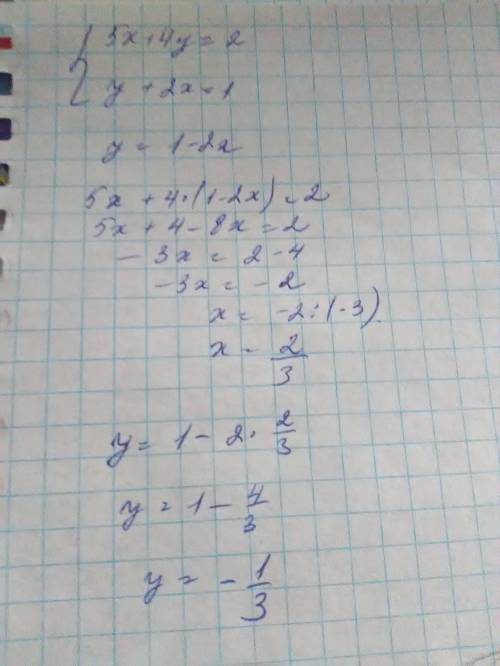 { 5x+4y=2
y+2x=1
y = 1-2x
5x+4·(1-2x)=2
5x+4-8x=2
-3x=2-4
-3x=-2
x=-2:(-3)
x=2/3
y=1-2·2/3
y=1-4/3
y=-1/3